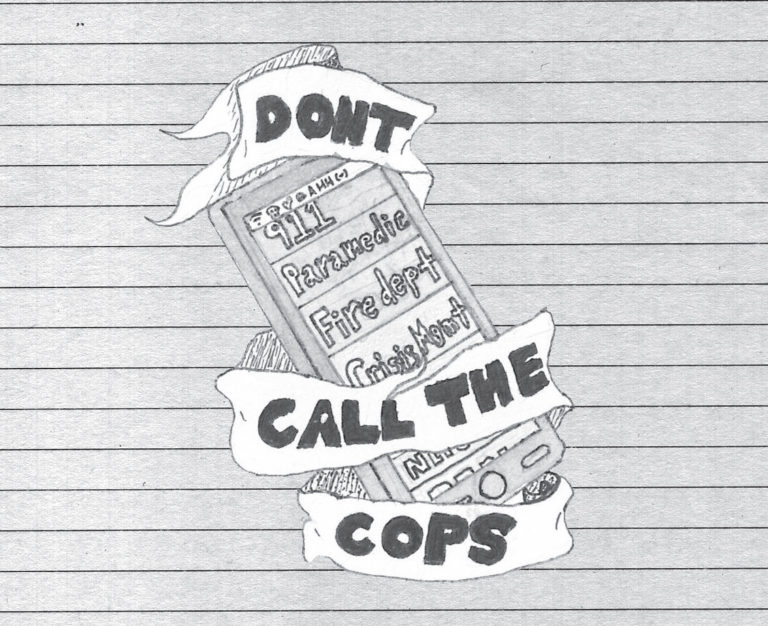 DONT
911
Paramedic
Fire dept
Crisis Mgmt
CALL THE
COPS